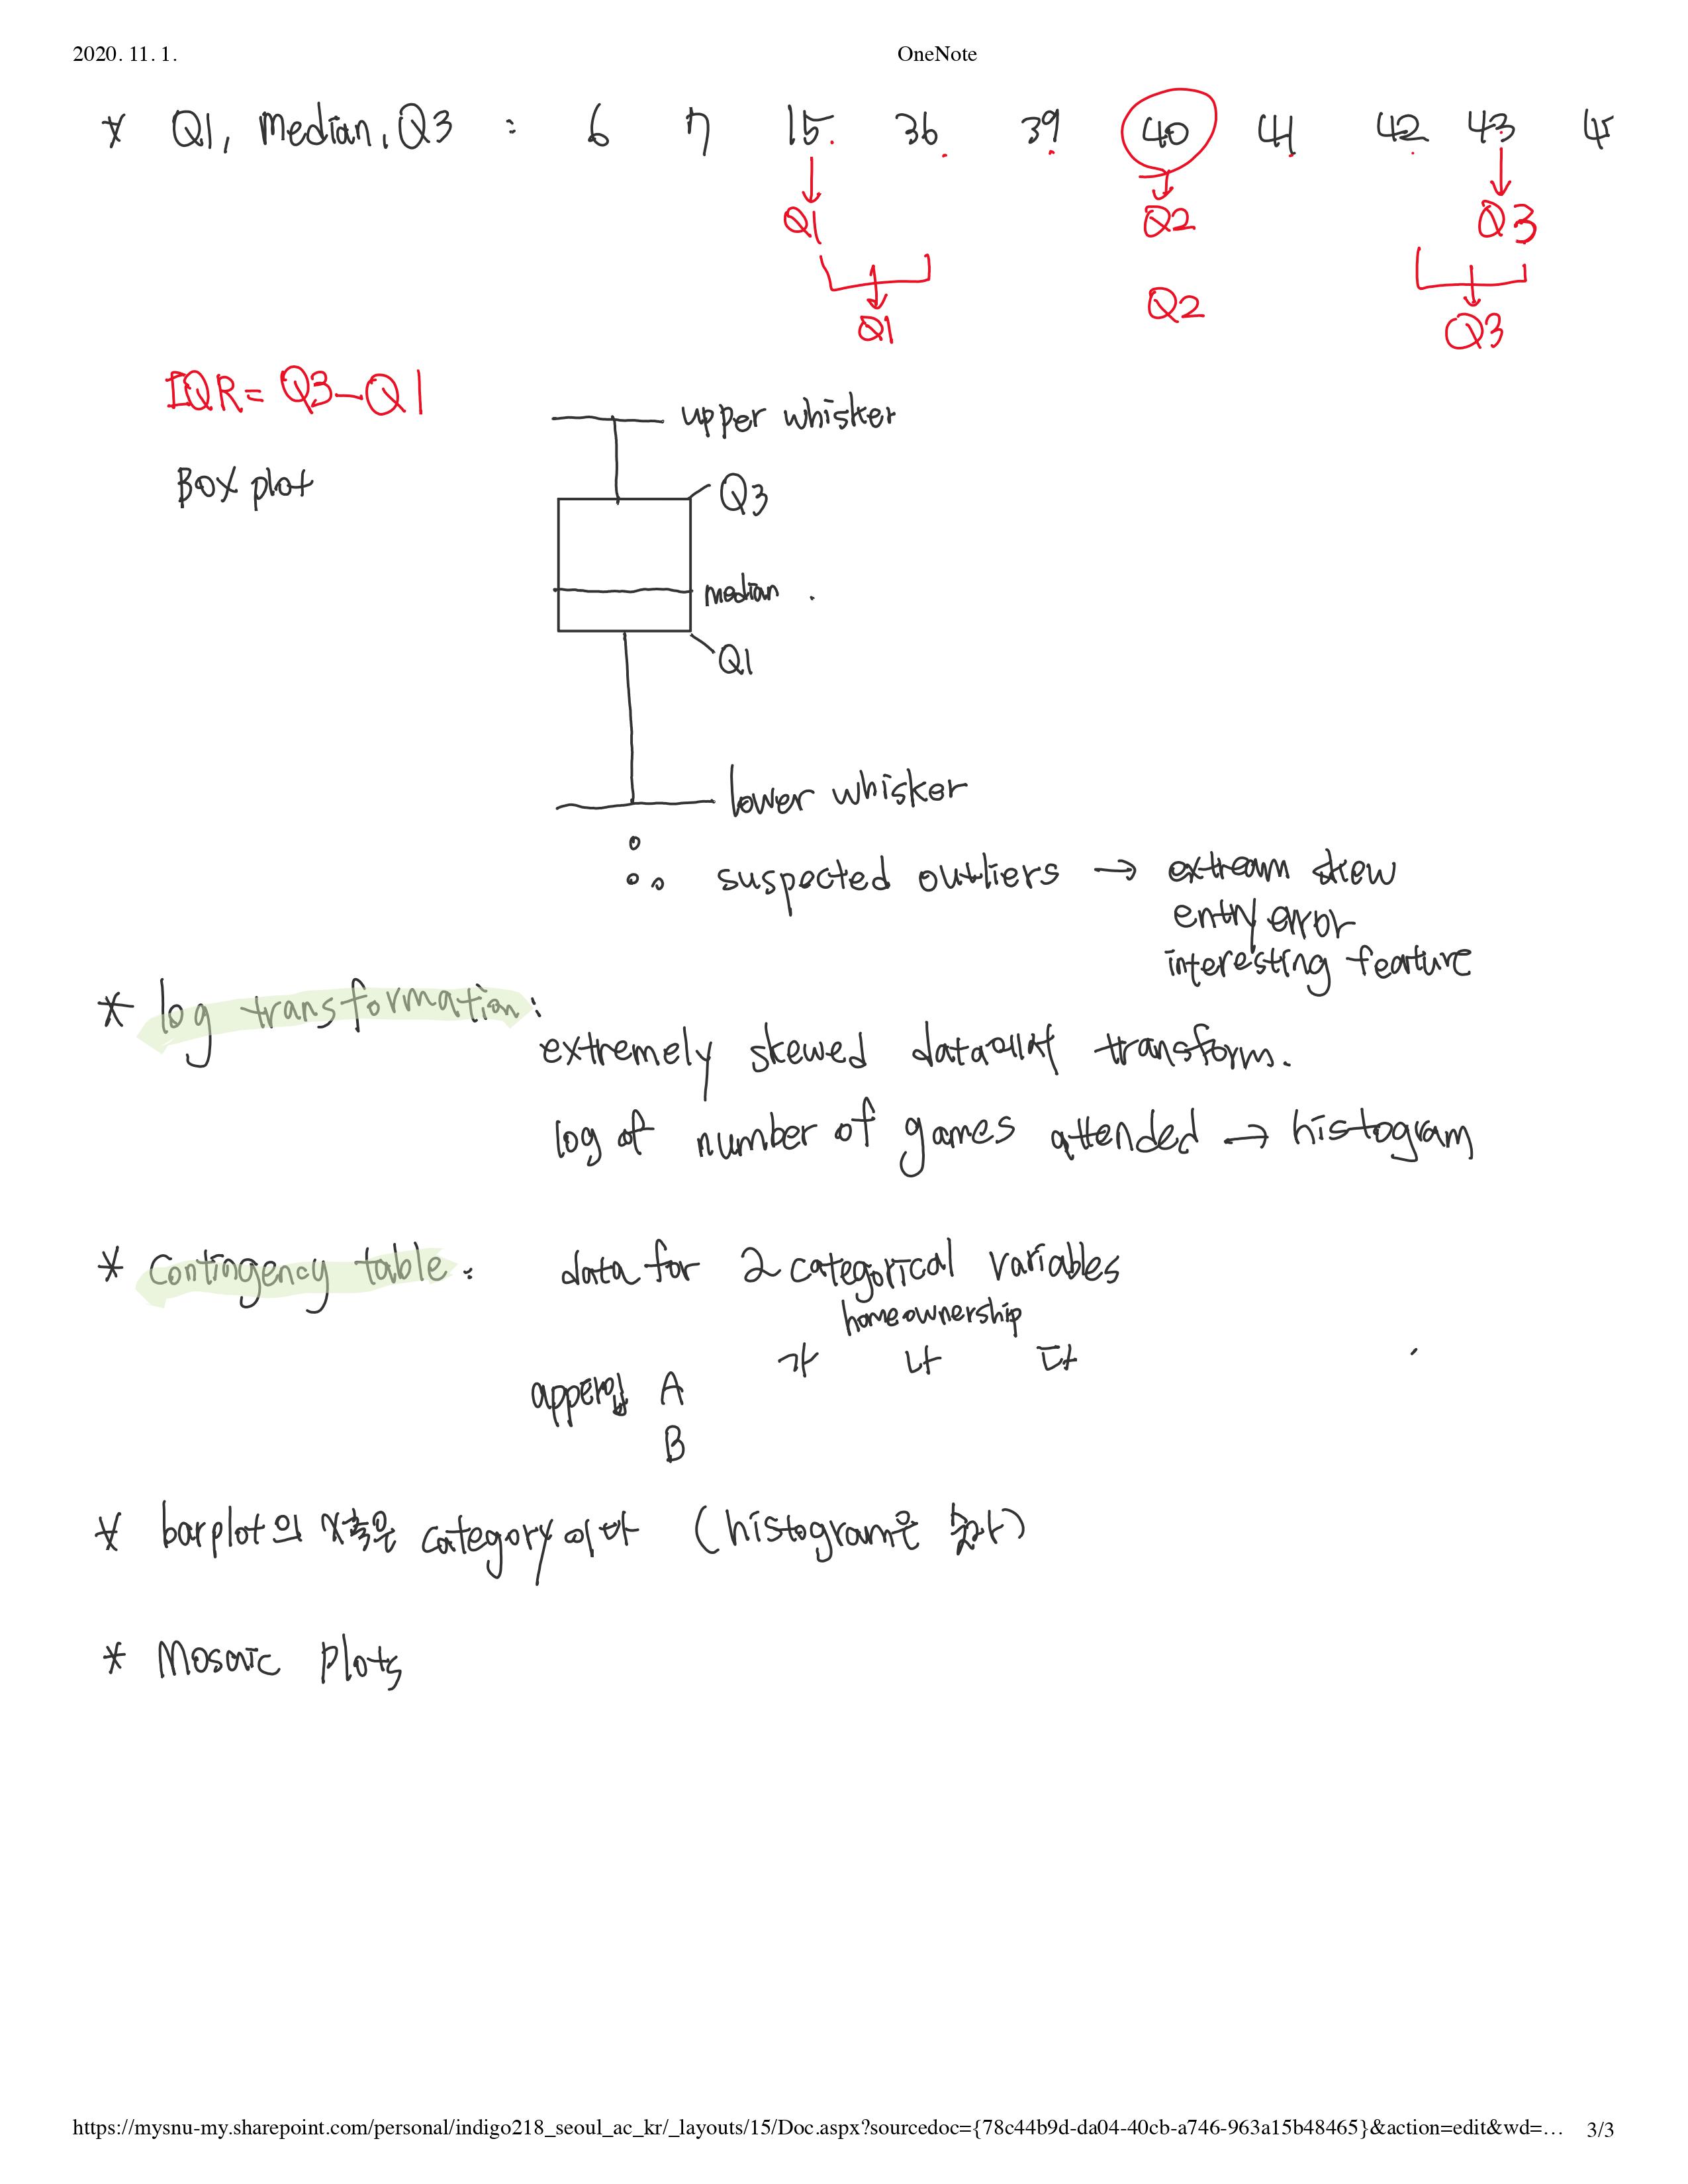 2020. 11. 1. OneNote
* Q1, Median, Q3 : 6 7 15 36 39 40 41 42 43
Q1 Q2 Q3
Q1 Q2 Q3
IQR = Q3-Q1
upper whisker
Box plot
Q3
median .
Q1
lower whisker
suspected outliers → extream skew
entry error
interesting feature
* log transformation:
extremely skewed data에서 transform.
log of number of games attended → histogram
* Contingency table: data for 2 categorical variables
homeownership
가 나 다
A
B
* barplot의 X축은 category이다 (histogram은 숫자)
* Mosaic Plots
https://mysnu-my.sharepoint.com/personal/indigo218_seoul_ac_kr/_layouts/15/Doc.aspx?sourcedoc={78c44b9d-da04-40cb-a746-963a15b48465}&action=edit&wd=… 3/3